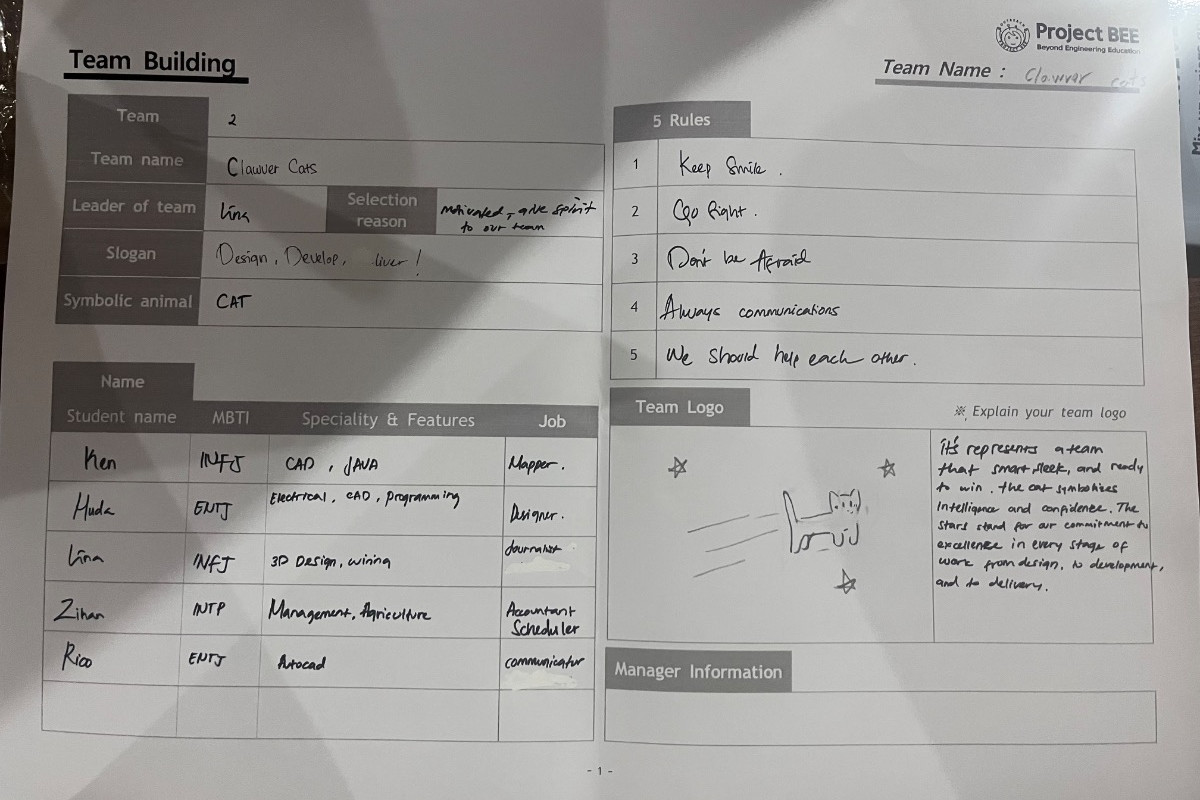 Project BEE
Beyond Engineering Education
Team Building
Team Name : Clawver cats
Team 2
Team name Clawver Cats
Leader of team Lina Selection reason Motivated, give spirit to our team
Slogan Design, Develop, liver!
Symbolic animal CAT
5 Rules
1 Keep Smile.
2 Go Right.
3 Don't be Afraid
4 Always communications
5 We should help each other.
Name
Student name MBTI Speciality & Features Job
Ken INFJ CAD, JAVA Mapper.
Huda ENTJ Electrical, CAD, programming Designer.
Lina INFJ 3D Design, wiring Journalist
Zihan INTP Management, Agriculture Accountant Scheduler
Rico ENTJ Autocad communicator
Team Logo
※ Explain your team logo
it's represents a team
that smart, sleek, and ready
to win. the cat symbolizes
intelligence and confidence. The
stars stand for our commitment to
excellence in every stage of
work from design, to development,
and to delivery.
Manager Information
- 1 -